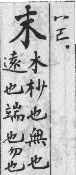 末
木杪也無也
遠也端也勿也